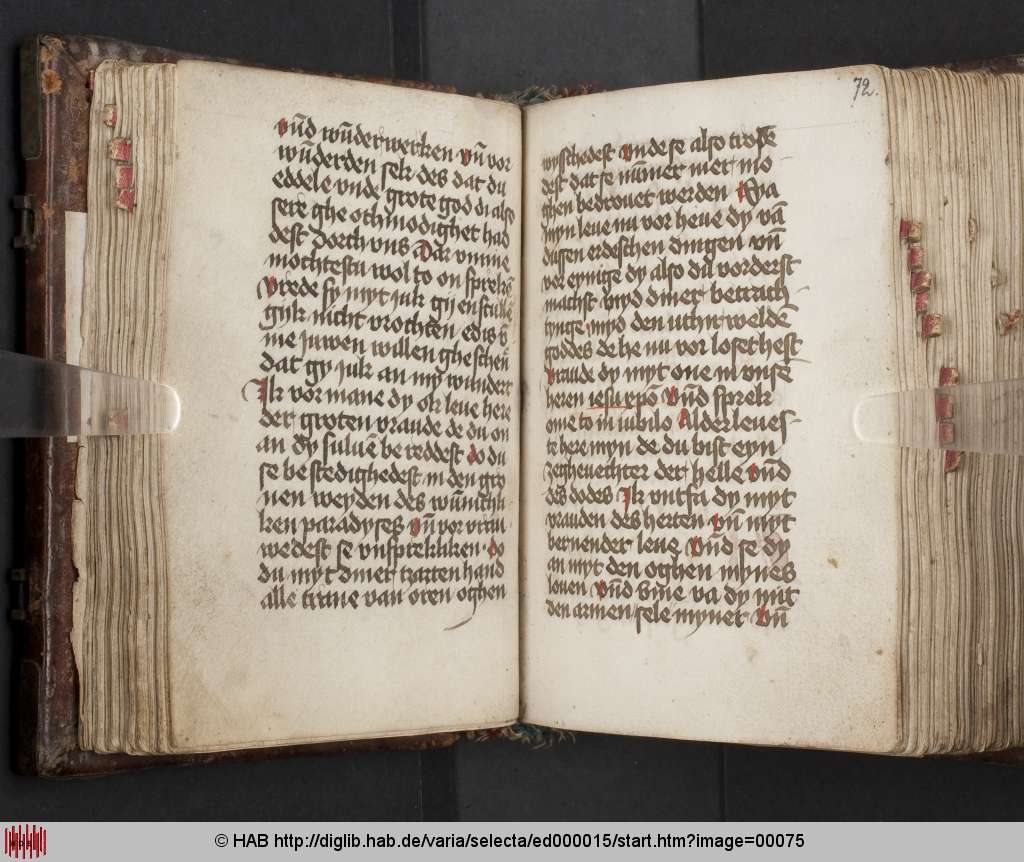 vn̄d wūderwerken vn̄ vor
wūderden sek des dat du
eddele vnde grote god di also
sere ghe othmodighet had
dest dorch vns Dar vmme
mochtestu wol to on sprekē
vrede sy myt juk gy en stulle
gyk nicht vrochten ed is ē
me juwen willen gheschen
dat gy juk an my wundert
Ik vor mane dy ok leue here
der groten vraude de du on
an dy suluē bereddest do du
se bestedighedest in den gro
nen weyden des wūnichli
ken paradyses vn̄ vor vrau
wedest se vnsprekliken do
du myt diner tzarten hand
alle trane van oren oghen
72.
wyschedest vnde se also trost
dest dat se nūmer mer mo
ghen bedrouet werden
myn leue nu vor heue dy vā
dussen erdeschen dingen vn̄
vor eynige dy also du vorderst
machst myd diner betrach
tynge myd den vthir welden
goddes de he nu vor loset hest
vraude dy myt one in vnse
heren iesu xpō vn̄d sprek
ome to in iubilo Alderleues
te here myn de du bist eyn
zeghevechter der helle vn̄d
des dodes Ik vntfa dy myt
vrauden des herten vn̄ myt
bernender leue vn̄d se dy
an myt den oghen mynes
louen vn̄d vme va dy mit
den armen sele myner vn̄
© HAB http://diglib.hab.de/varia/selecta/ed000015/start.htm?image=00075